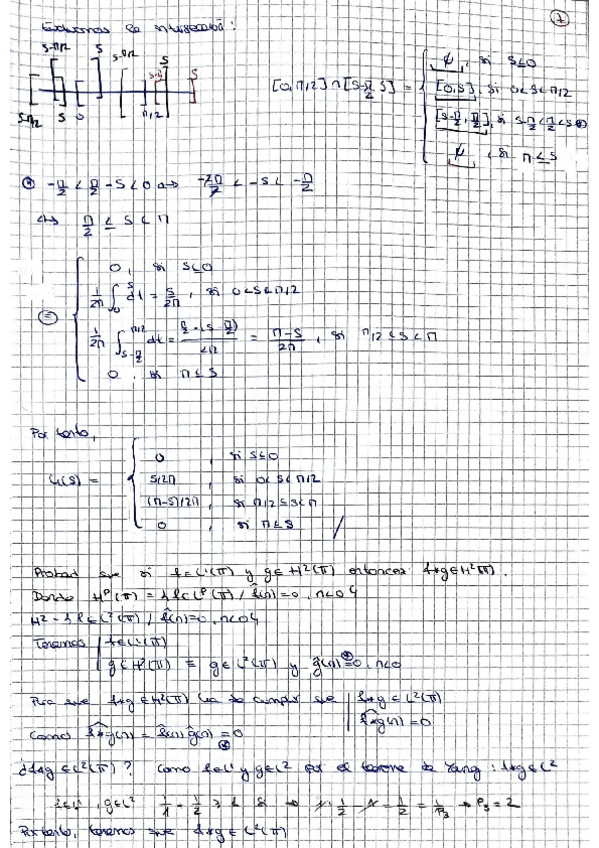 7
Estudiamos la intersección:
S-π/2 S S-π/2 S
S-π/2 S 0 π/2 S
[0,π/2]∩[S-π/2,S] = { ψ, si S≤0
[0,S], si 0<S<π/2
[S-π/2, π/2], si S-π/2<π/2<S
ψ, si π≤S
-π/2 < π/2 - S < 0 ⇔ -2π/2 < -S < -π/2
⇔ π/2 ≤ S < π
= { 0, si S≤0
1/2π ∫₀^S dt = S/2π, si 0<S<π/2
1/2π ∫_{S-π/2}^{π/2} dt = (π/2 - (S-π/2))/2π = (π-S)/2π, si π/2≤S<π
0, si π≤S
Por tanto,
(S) = { 0, si S≤0
S/2π, si 0<S<π/2
(π-S)/2π, si π/2≤S<π
0, si π≤S
Probad que si f∈L¹(π) y g∈H²(π) entonces f*g∈H²(π).
Donde H^p(π) = { f∈L^p(π) / f̂(n)=0, n<0 }
H² = { f∈L²(π) / f̂(n)=0, n<0 }
Tenemos | f∈L¹(π)
g∈H²(π) ≡ g∈L²(π) y ĝ(n)=0, n<0
Para que f*g∈H²(π) ha de cumplir que | f*g∈L²(π)
f*g(n)=0
Como f*g(n) = f̂(n) ĝ(n) = 0
¿f*g∈L²(π)? Como f∈L¹ y g∈L² por el teorema de Young: f*g∈L²
f∈L¹, g∈L² 1/1 + 1/2 ≥ 1 1/2 = 1/P₃ → P₃ = 2
Por tanto, tenemos que f*g∈L²(π)